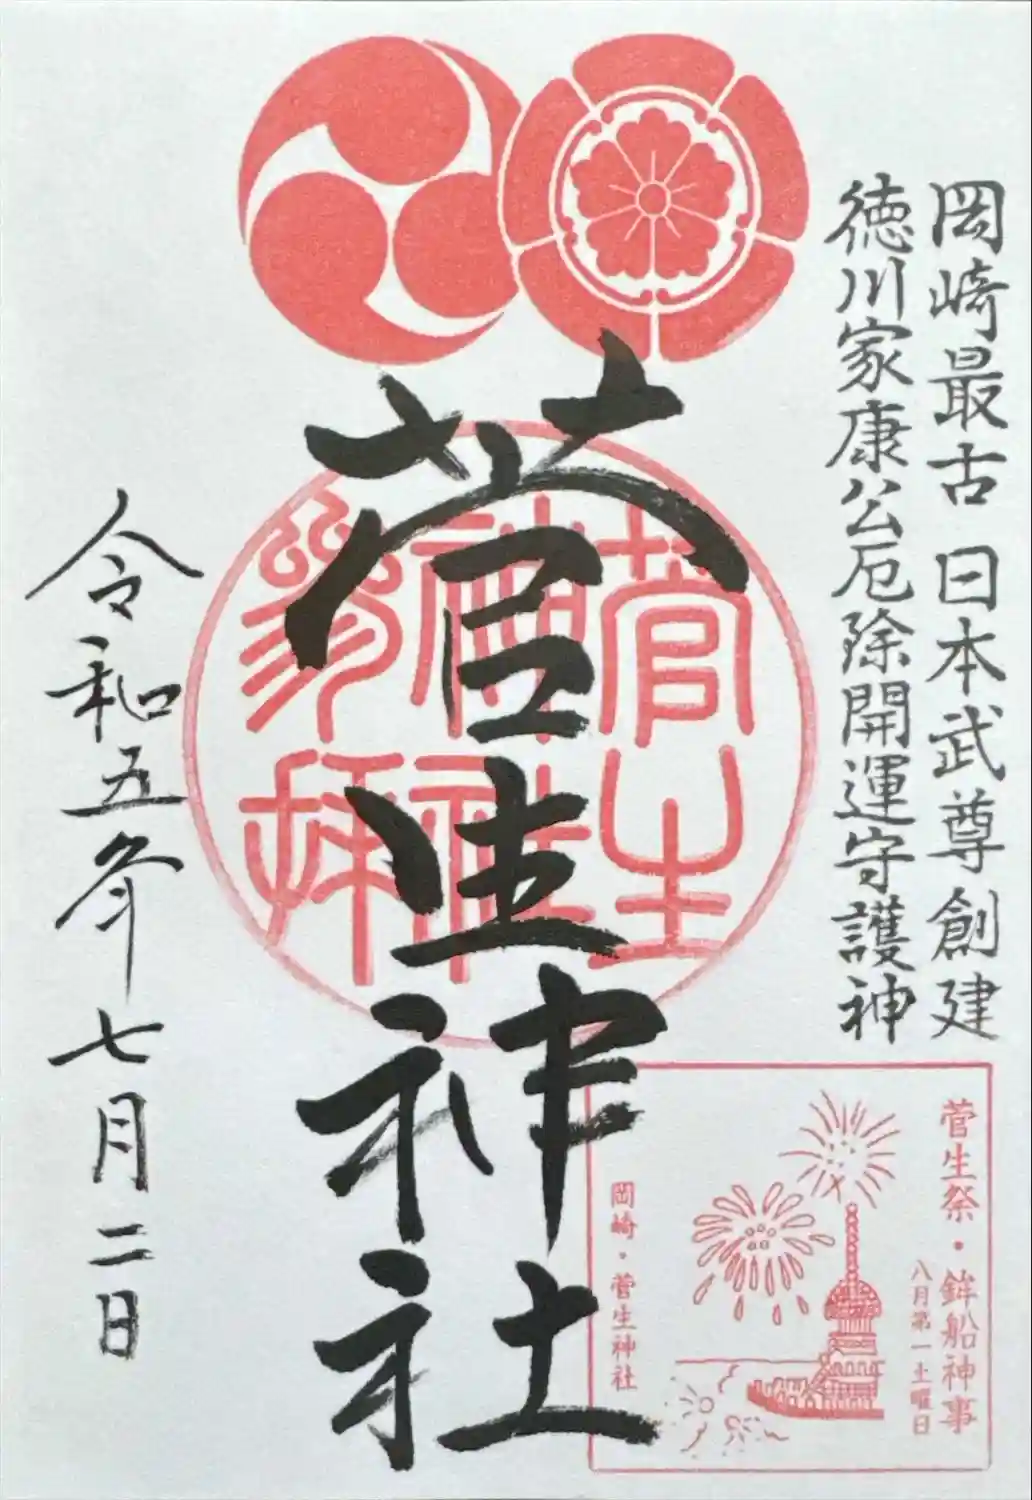 岡崎最古 日本武尊創建
徳川家康公厄除開運守護神
菅生神社
菅生
神社
参拝
令和五年七月二日
菅生祭・鉾船神事
八月第一土曜日
岡崎・菅生神社